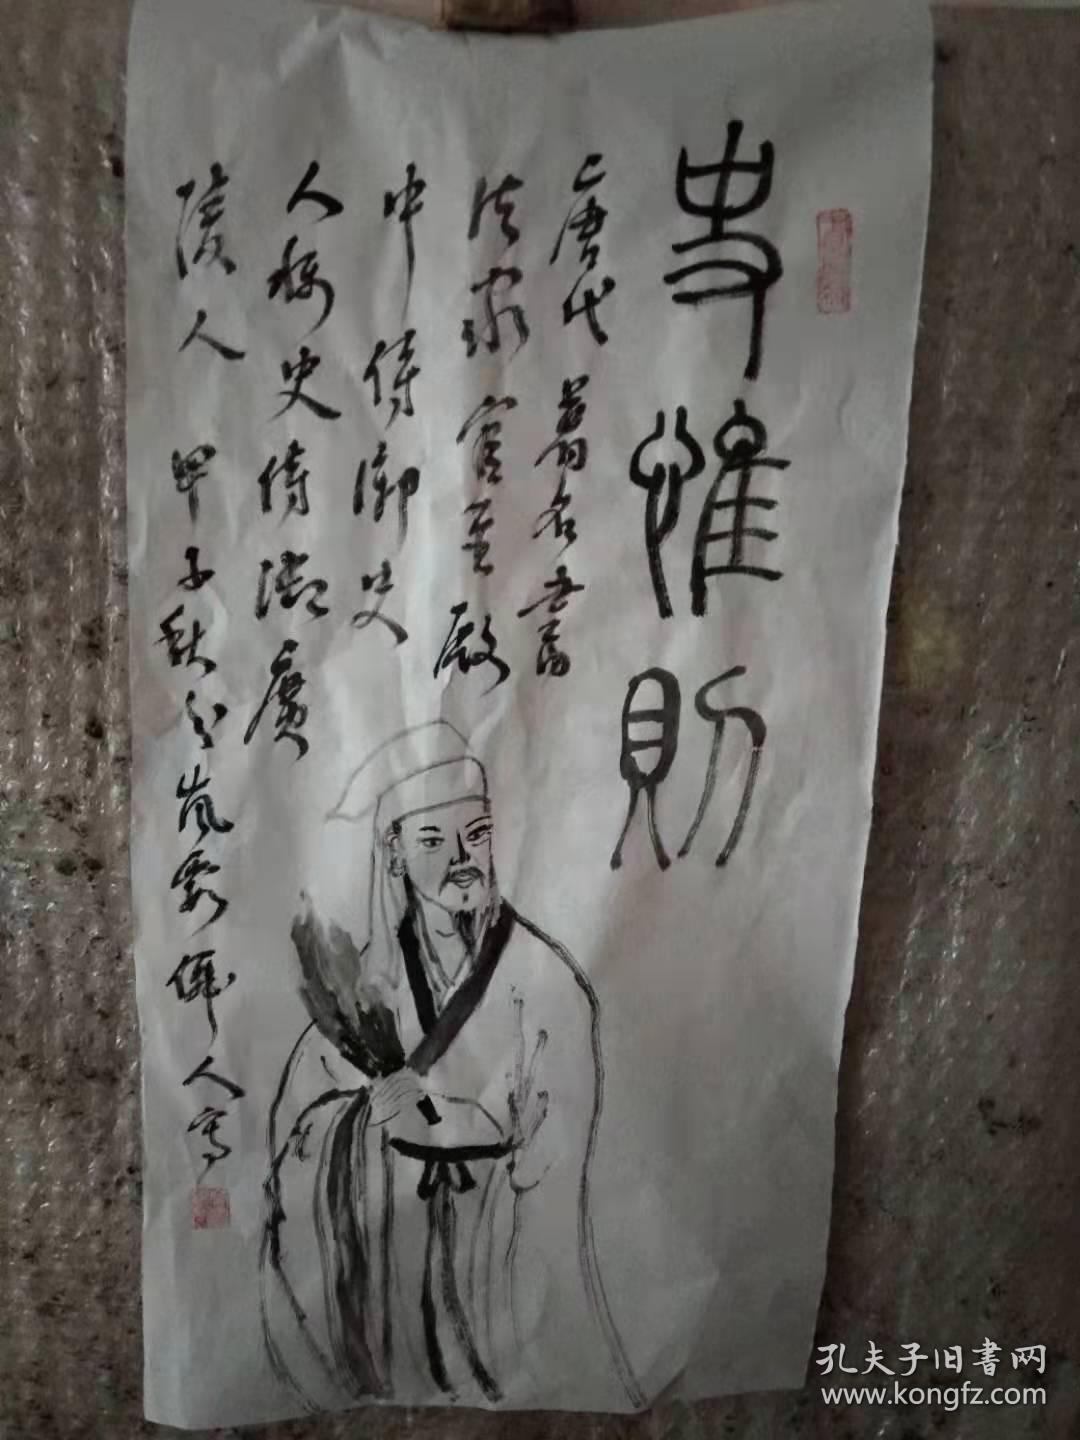 史惟则
唐代著名书
法家官至殿
中侍御史
人称史侍御广
陵人 甲子秋分岚雾僊人写
孔夫子旧書网
www.kongfz.com